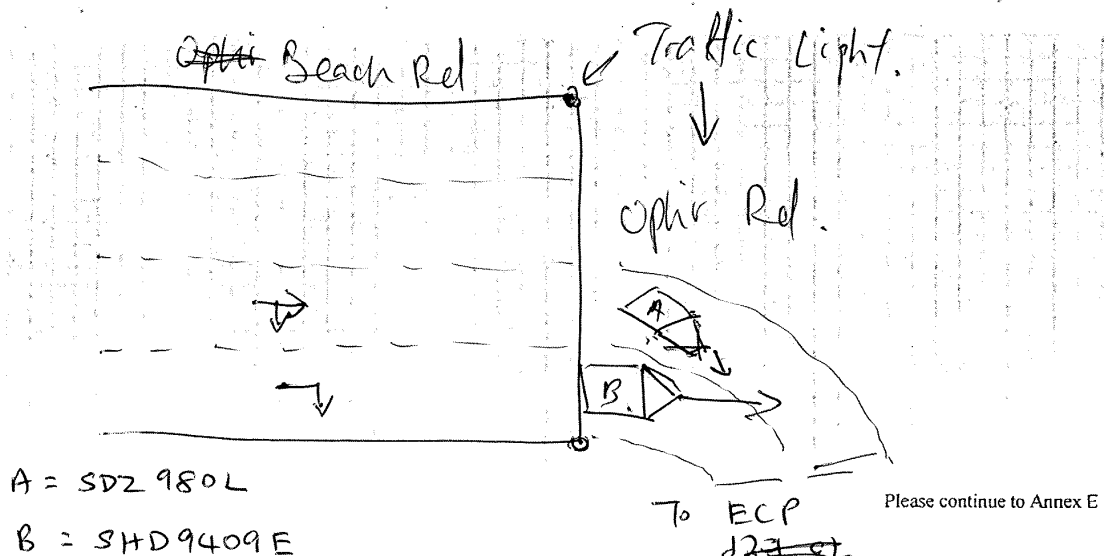 Ophir Beach Rd
Traffic Light.
Ophir Rd.
A
B.
A = SDZ 980L
B = SHD9409E
To ECP
Please continue to Annex E